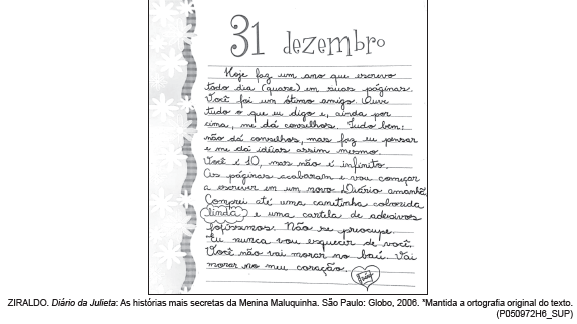 31 dezembro
Hoje faz um ano que escrevo
todo dia (quase) em suas páginas.
Você foi um ótimo amigo. Ouve
tudo o que eu digo e, ainda por
cima, me dá conselhos. Tudo bem:
não dá conselhos, mas faz eu pensar
e me dá idéias assim mesmo.
Você é 10, mas não é infinito.
As páginas acabaram e vou começar
a escrever em um novo Diário amanhã.
Comprei até uma canetinha colorida
linda e uma cartela de adesivos
fofíssimos. Não se preocupe.
Eu nunca vou esquecer de você.
Você não vai morar no baú. Vai
morar no meu coração.
ZIRALDO. Diário da Julieta: As histórias mais secretas da Menina Maluquinha. São Paulo: Globo, 2006. *Mantida a ortografia original do texto.
(P050972H6_SUP)